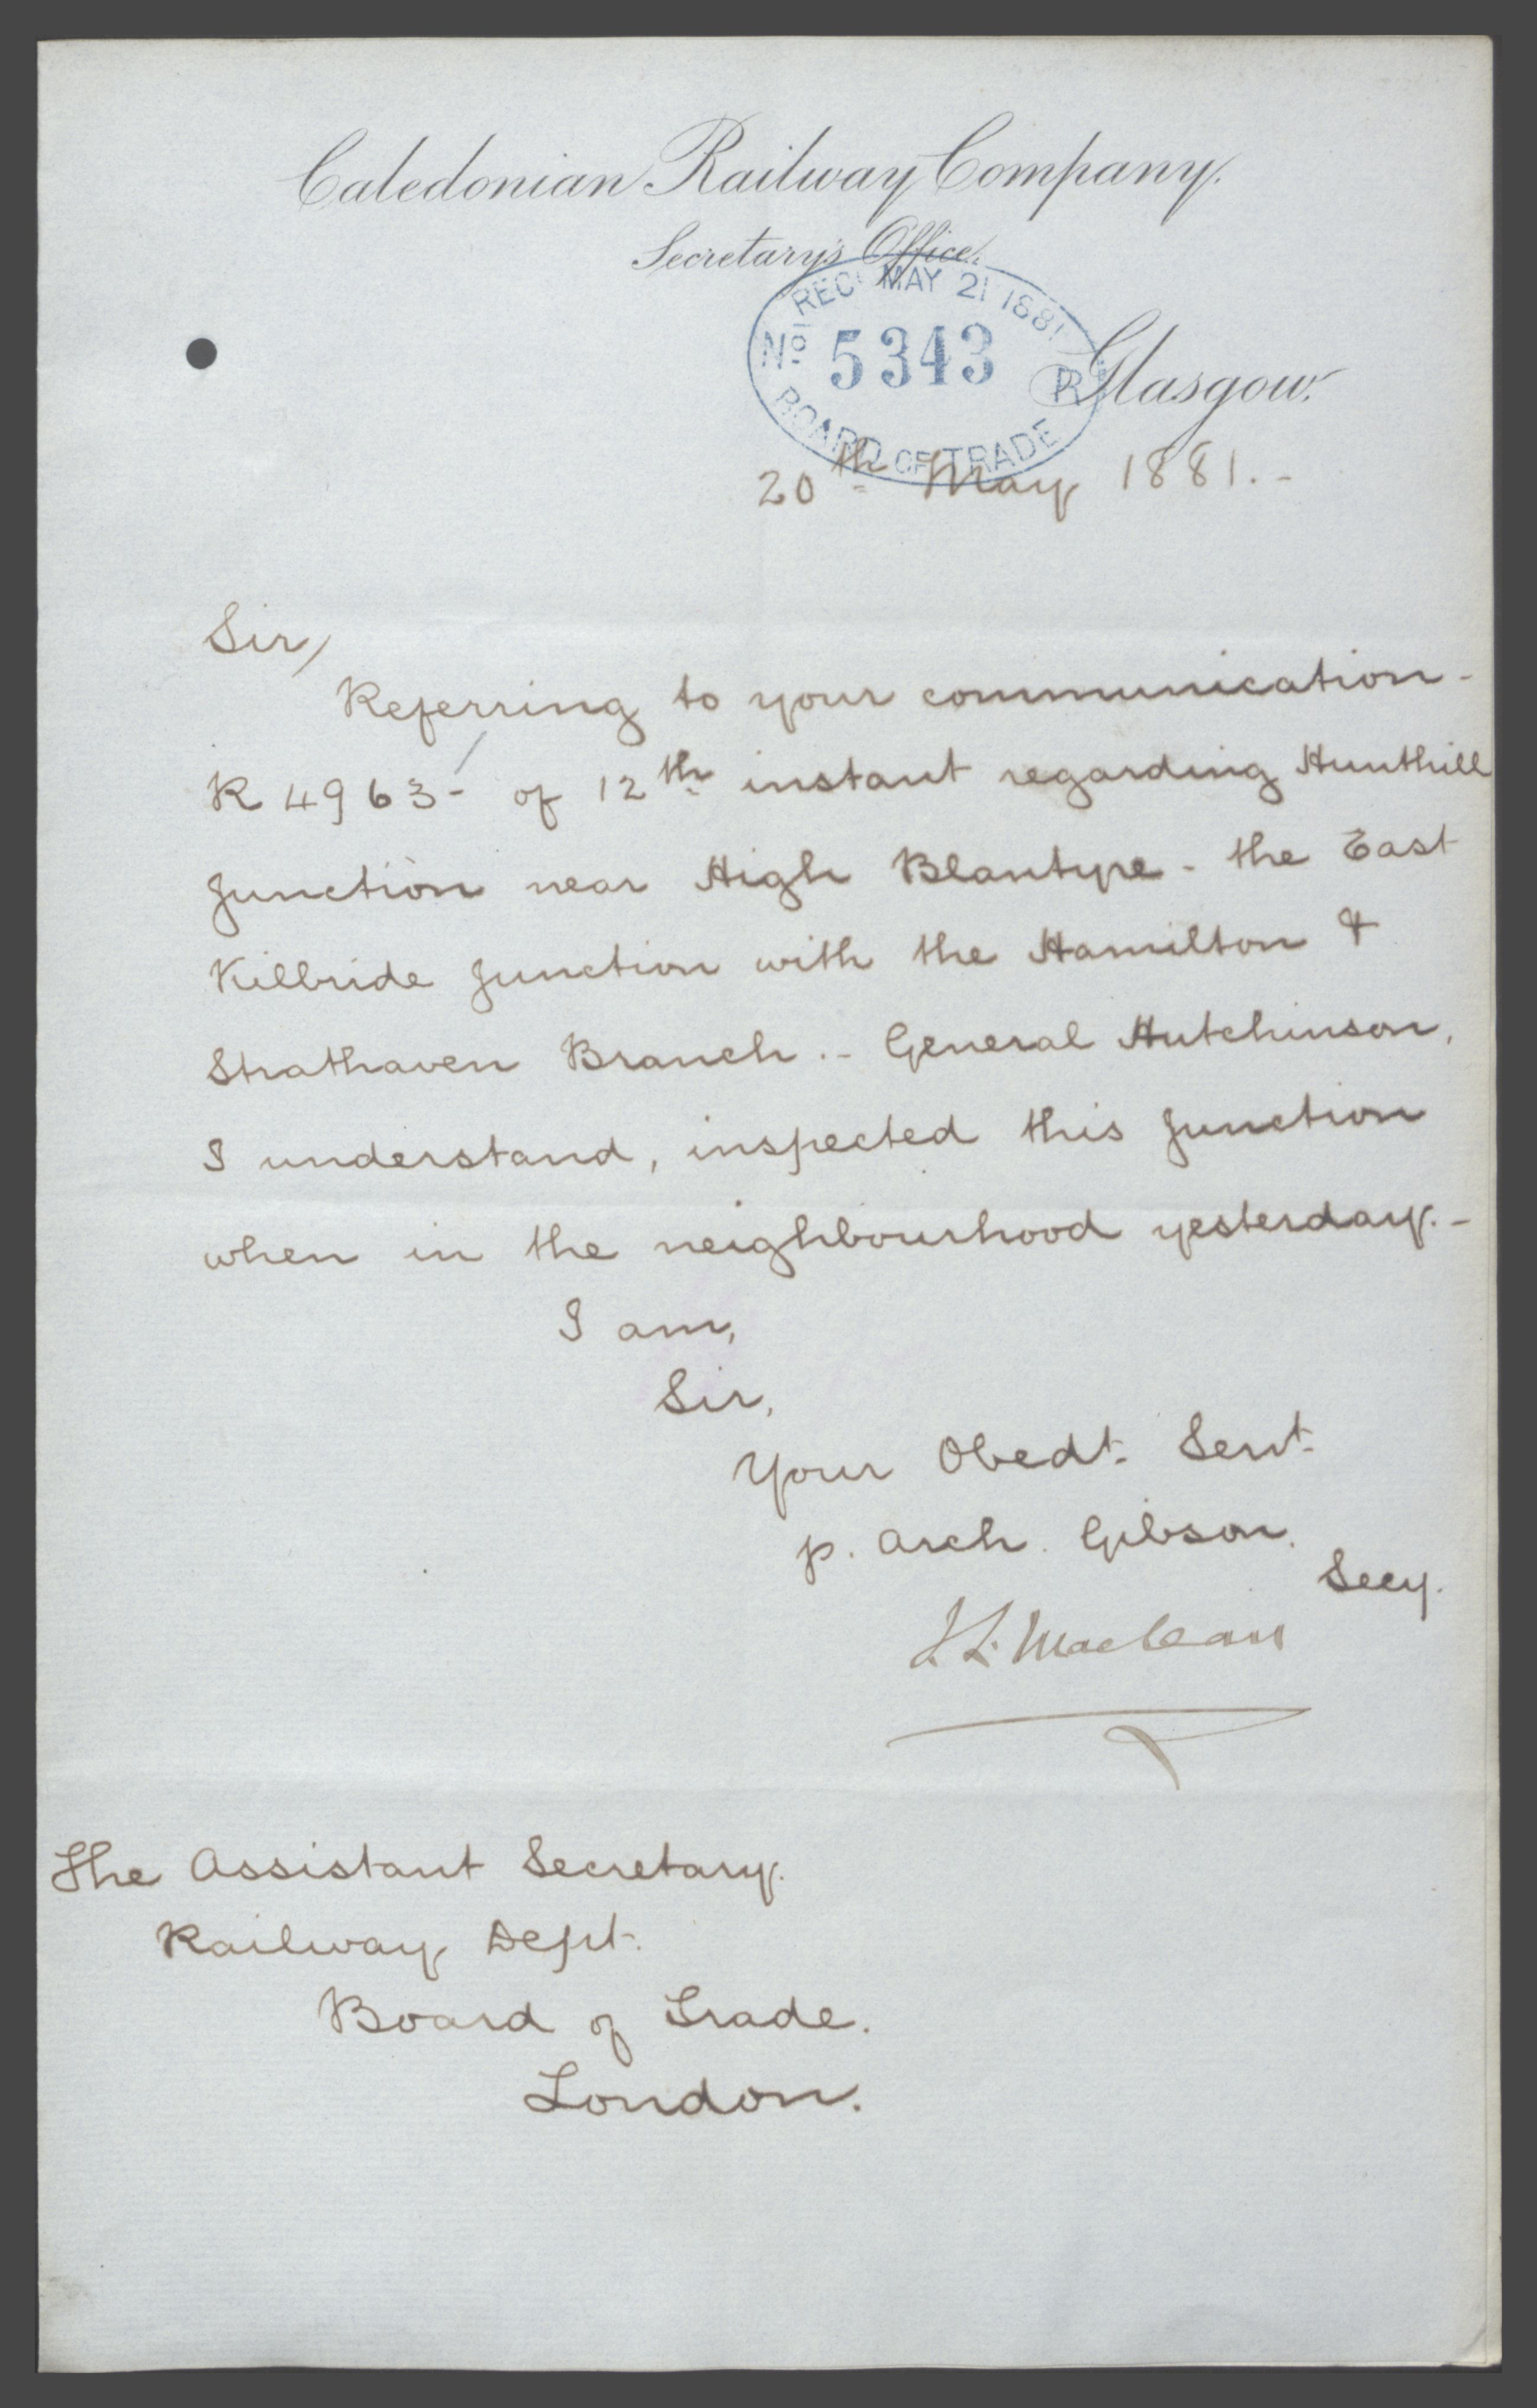 Caledonian Railway Company.
Secretary's Office.
REC. MAY 21 1881
No 5343 R
BOARD OF TRADE
Glasgow.
20th May 1881.-
Sir,
Referring to your communication -
R 4963 - of 12th instant regarding Hunthill
Junction near High Blantyre - the East
Kilbride Junction with the Hamilton &
Strathaven Branch. - General Hutchinson,
I understand, inspected this Junction
when in the neighbourhood yesterday. -
I am,
Sir,
Your Obedt. Servt.
p. Arch. Gibson.
Secy.
J. L. Maclean
The Assistant Secretary.
Railway Dept.
Board of Trade.
London.